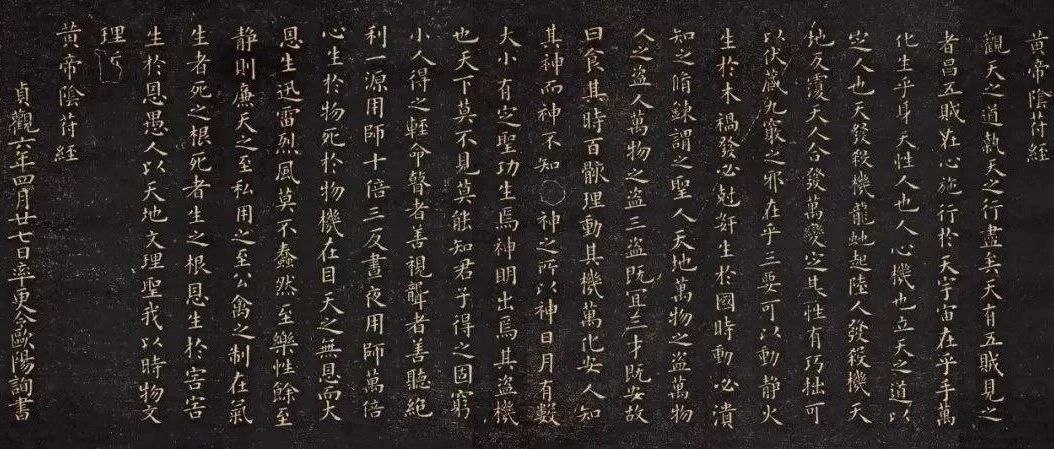 黄帝陰苻經
觀天之道執天之行盡矣天有五賊見之
者昌五賊在心施行於天宇宙在乎手萬
化生乎身天性人也人心機也立天之道以
定人也天發殺機龍虵起陸人發殺機天
地反覆天人合發萬變定其性有巧拙可
以伏藏九竅之邪在乎三要可以動静火
生於木禍發必尅奸生於國時動必潰
知之脩鍊謂之聖人天地萬物之盗萬物
人之盗人萬物之盗三盗既宜三才既安故
曰食其時百骸理動其機萬化安人知
其神而神不知神之所以神日月有數
大小有定聖功生焉神明出焉其盗機
也天下莫不見莫能知君子得之固窮
小人得之輕命瞽者善視聾者善聽絶
利一源用師十倍三反晝夜用師萬倍
心生於物死於物機在目天之無恩而大
恩生迅雷烈風莫不蠢然至樂性餘至
静則廉天之至私用之至公禽之制在氣
生者死之根死者生之根恩生於害害
生於恩愚人以天地文理聖我以時物文
理
黄帝陰苻經
貞觀六年四月廿七日率更令歐陽詢書